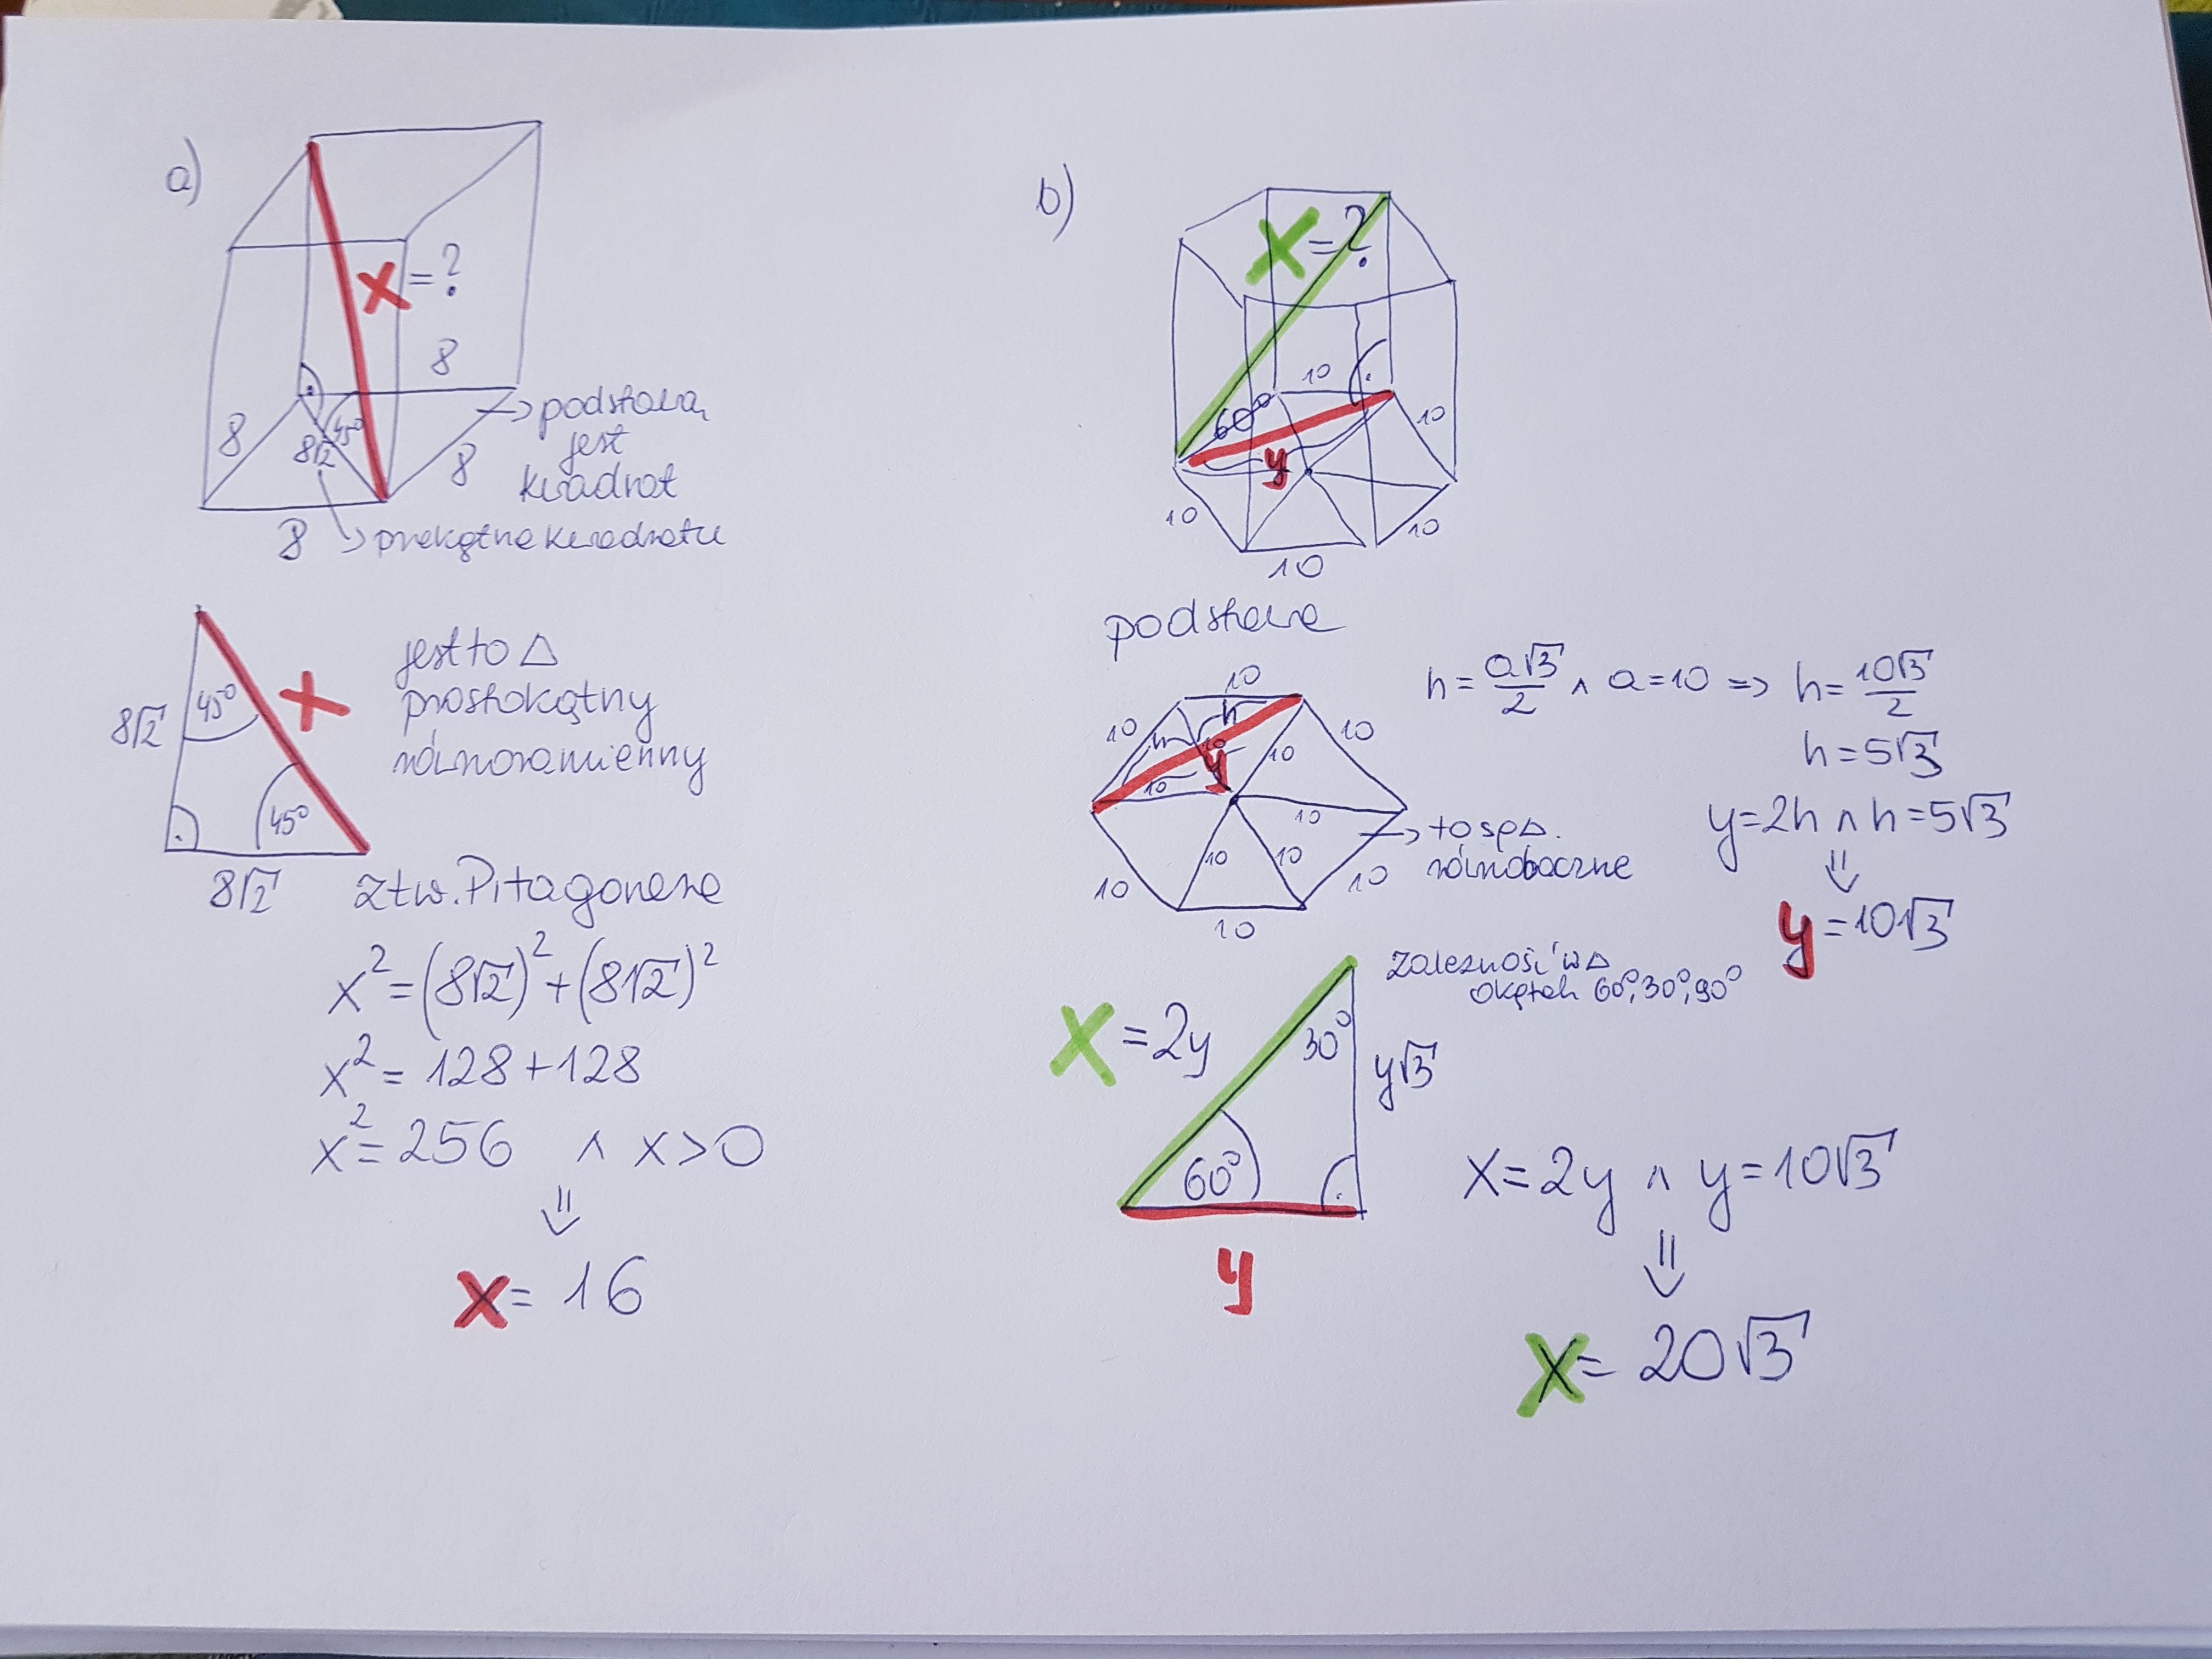 a)
x=?
8
8
45°
8√2
8
8
podstawą
jest
kwadrat
przekątna kwadratu
45°
8√2
x
45°
8√2
jest to △
prostokątny
równoramienny
z tw. Pitagorasa
x²=(8√2)²+(8√2)²
x²=128+128
x²=256 ∧ x>0
⇓
x=16
b)
x=?
10
60°
10
y
10
10
10
podstawa
10
10
h
h
10
y
10
10
10
10
10
10
10
10
10
to są △.
równoboczne
h=a√3/2 ∧ a=10 => h=10√3/2
h=5√3
y=2h ∧ h=5√3
⇓
y=10√3
zależność w △
o kątach 60°,30°,90°
x=2y
30°
y√3
60°
y
x=2y ∧ y=10√3
⇓
x=20√3